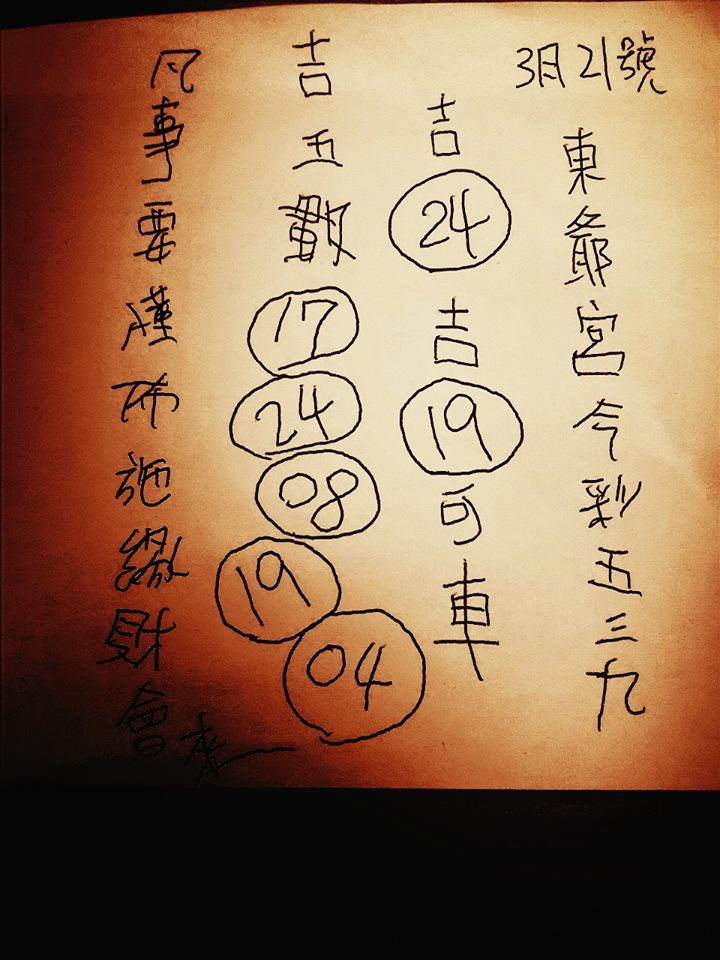 3月21號
東爺宮今彩五三九
吉24吉19可車
吉五數17 24 08 19 04
凡事要布施緣財會來